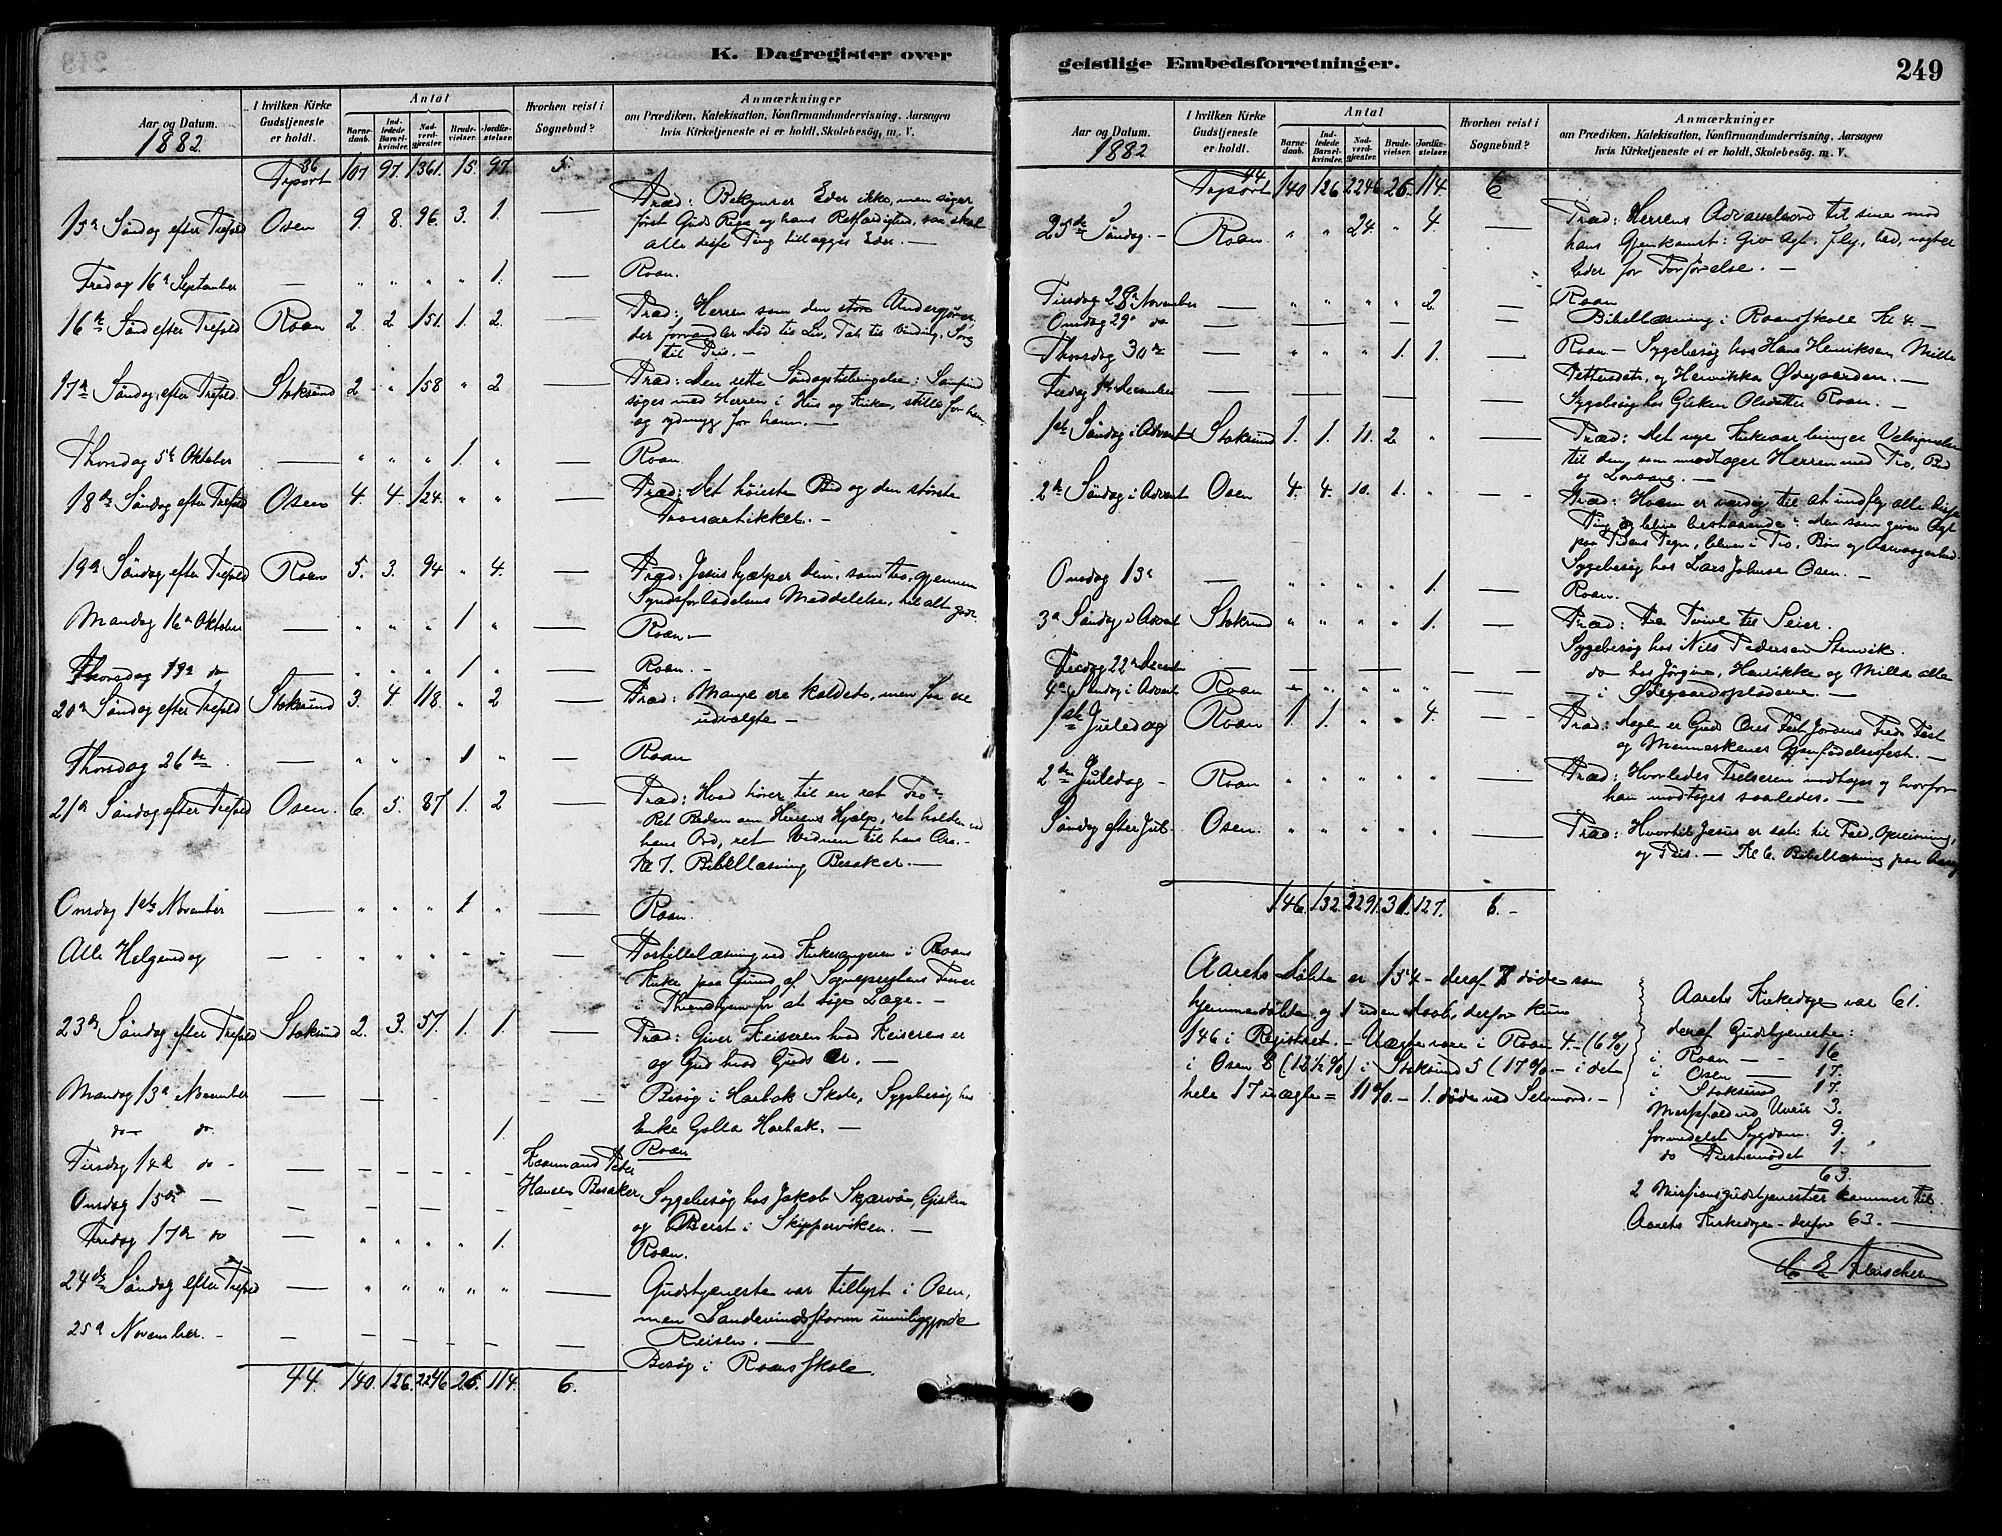 K. Dagregister over
Aar og Datum.
1882.
I hvilken Kirke Gudstjeneste er holdt.
Antal
Barnedaab. Indledede Barselkvinder. Nadverdgjæster. Brudevielser. Jordfæstelser.
Hvorhen reist i Sognebud?
Anmærkninger
om Prædiken, Katekisation, Konfirmandundervisning, Aarsagen
hvis Kirketjeneste ei er holdt, Skolebesög, m. V.
Trpört 36 107 97. 1361. 15. 97. 5.
15de Søndag efter Trefold Osen 9. 8. 96. 3. 1. — Præd: Bekymrer Eder ikke, men søger
først Guds Rige og hans Retfærdighed, saa skal
alle disse Ting tillægges Eder. —
Fredag 16de September — " " " " 1. — Roan.
16de Sønd efter Trefold Roan 2. 2 151. 1. 2. — Præd: Herren som den store Undergjører,
der forvandler Død til Liv, Tab til Vinding, Sorg
til Pris. —
17de Søndag efter Trefold Stoksund 2 " 158 " 2 — Præd: Den rette Søndagshelligelse: Samfund
søges med Herren i Hus og Kirke, stille for ham
og ydmyg for ham. —
Thorsdag 5te Oktober — " " " 1. " — Roan.
18de Søndag efter Trefold Osen 4. 4. 124. " " — Præd: Det høieste Bud og den største
Troesartikkel. —
19de Søndag efter Trefold Roan 5. 3. 94 " 4. — Præd: Jesus hjælper dem, som tro, gjennem
Syndsforladelsens Meddelelse, til alt godt.
Mandag 16de Oktober — " " " 1 " — Roan —
Thorsdag 19de do — " " " 1 " — Roan. —
20de Søndag efter Trefold Stoksund 3. 4. 118. " 2 — Præd: Mange ere kaldede, men faa ere
udvalgte —
Thorsdag 26de — " " " 1 " — Roan
21de Søndag efter Trefold Osen. 6. 5. 87. 1. 2 — Præd: Hvad hører til en ret Tro:
Ret Beden om Herrens Hjælp, ret holden ved
hans Ord, ret Vidnen til hans Ære. —
Kl 7. Bibellæsning Besaker. —
Onsdag 1ste November — " " " 1 " — Roan.
Alle Helgensdag — " " " " " — Postillelæsning ved Kirkesangeren i Roans
Kirke paa Grund af Sogneprestens
i Throndhjem for at søge Læge. —
23de Søndag efter Trefold Stoksund 2. 3. 57. 1. 1. — Præd: Giver Keiseren hvad Keiserens er
og Gud hvad Guds er. —
Mandag 13de November — — — — Besøg i Harbak Skole, Sygebesøg hos
do — do. 1. Enke Golla Harbak. —
Tirsdag 14de do — — — — — Kaarmand Peder Roan
Onsdag 15de — — — — — Hansen Besaker Sygebesøg hos Jakob Skjærvø, Gisken
og Berit i Skippervikken. —
Fredag 17de do — " " " " 1. Roan.
24de Søndag efter Trefold — " " " " " — Gudstjeneste var tillyst i Osen,
men Søndenvindsstorm umuliggjorde
Reisen. —
25de November. — — — — — — Besøg i Roans Skole.
44. 140. 126. 2246 26. 114. 6.
geistlige Embedsforretninger.
249
Aar og Datum.
1882
I hvilken Kirke Gudstjeneste er holdt.
Antal
Barnedaab. Indledede Barselkvinder. Nadverdgjæster. Brudevielser. Jordfæstelser.
Hvorhen reist i Sognebud?
Anmærkninger
om Prædiken, Katekisation, Konfirmandundervisning, Aarsagen
hvis Kirketjeneste ei er holdt, Skolebesög, m. V.
Trpört 44 140 126 2246 26. 114. 6
25de Søndag. — Roan " " 24. " 4. — Præd: Herrens Advarselsord til sine mod
hans Gjenkomst: Giv Agt, fly, bed, vogter
Eder for Forførelse. —
Tirsdag 28de November — " " " " 2. — Roan
Onsdag 29de do — — — — — Bibellæsning i Roans Skole Kl 4. —
Thorsdag 30de — " " " 1. 1. — Roan — Sygebesøg hos Hans Henriksen, Mille
Pettersdatr, og Henrikka Ødegaarden. —
Fredag 1ste December — — — — Sygebesøg hos Gisken Olsdatter Roan. —
1ste Søndag i Advent Stoksund 1. 1. 11. 2. " — Præd: Det nye Kirkeaar bringer Velsignelse
til dem, som modtager Herren med Tro, Bøn
og Lovsang. —
2de Søndag i Advent Osen 4. 4. 10. 1. " — Præd: Hvem er værdig til at undfly alle disse
Ting og blive bestaaende: Den som giver Agt
paa Tidens Tegn, bliver i Tro, Bøn og Aarvaagenhed
Sygebesøg hos Lars Johnsen Osen. —
Onsdag 13de — " " " " 1. — Roan.
3de Søndag i Advent Stoksund " " " " 1. — Præd: Fra Tvivl til Seier.
Sygebesøg hos Nils Pedersen Stenvik.
Fredag 22de Decembr — — — — — do hos Jørgine, Henrikke og Mille alle
4de Søndag i Advent Roan " " " " " — i Ødegaardspladsene. —
1ste Juledag Roan 1. 1. " " 4. — Præd: Julen er Guds Æres Fest, Jordens Freds Fest
og Menneskenes Gjenfødelsesfest. —
2den Juledag — Roan " " " " " — Præd: Hvorledes Frelseren modtages og hvorfor
han modtages saaledes. —
Søndag efter Jul. Osen. " " " " " — Præd: Hvortil Jesus er sat: til Fald, Opreisning,
og Pris. — Kl 6. Bibellæsning paa
146. 132. 2291. 31. 127. 6. —
Aarets Døbte er 154 — deraf 7 døde som
hjemmedøbte og 1 uden daab, derfor kun
146 i Registret. — Uægte vare i Roan 4. — (6%)
i Osen 8 (12½%) i Stoksund 5 (17%) — i det
hele 17 uægte = 11% — 1 døde ved Selvmord. —
Aarets Kirkedage var 61.
deraf Gudstjeneste:
i Roan — — 16
i Osen — 17.
i Stoksund 17.
Messefald ved Uveir 3.
formedelst Sygdom. 9.
do Prestemødet 1.
63.
2 Missionsgudstjenester kommer til
Aarets Kirkedage — derfor 63. —